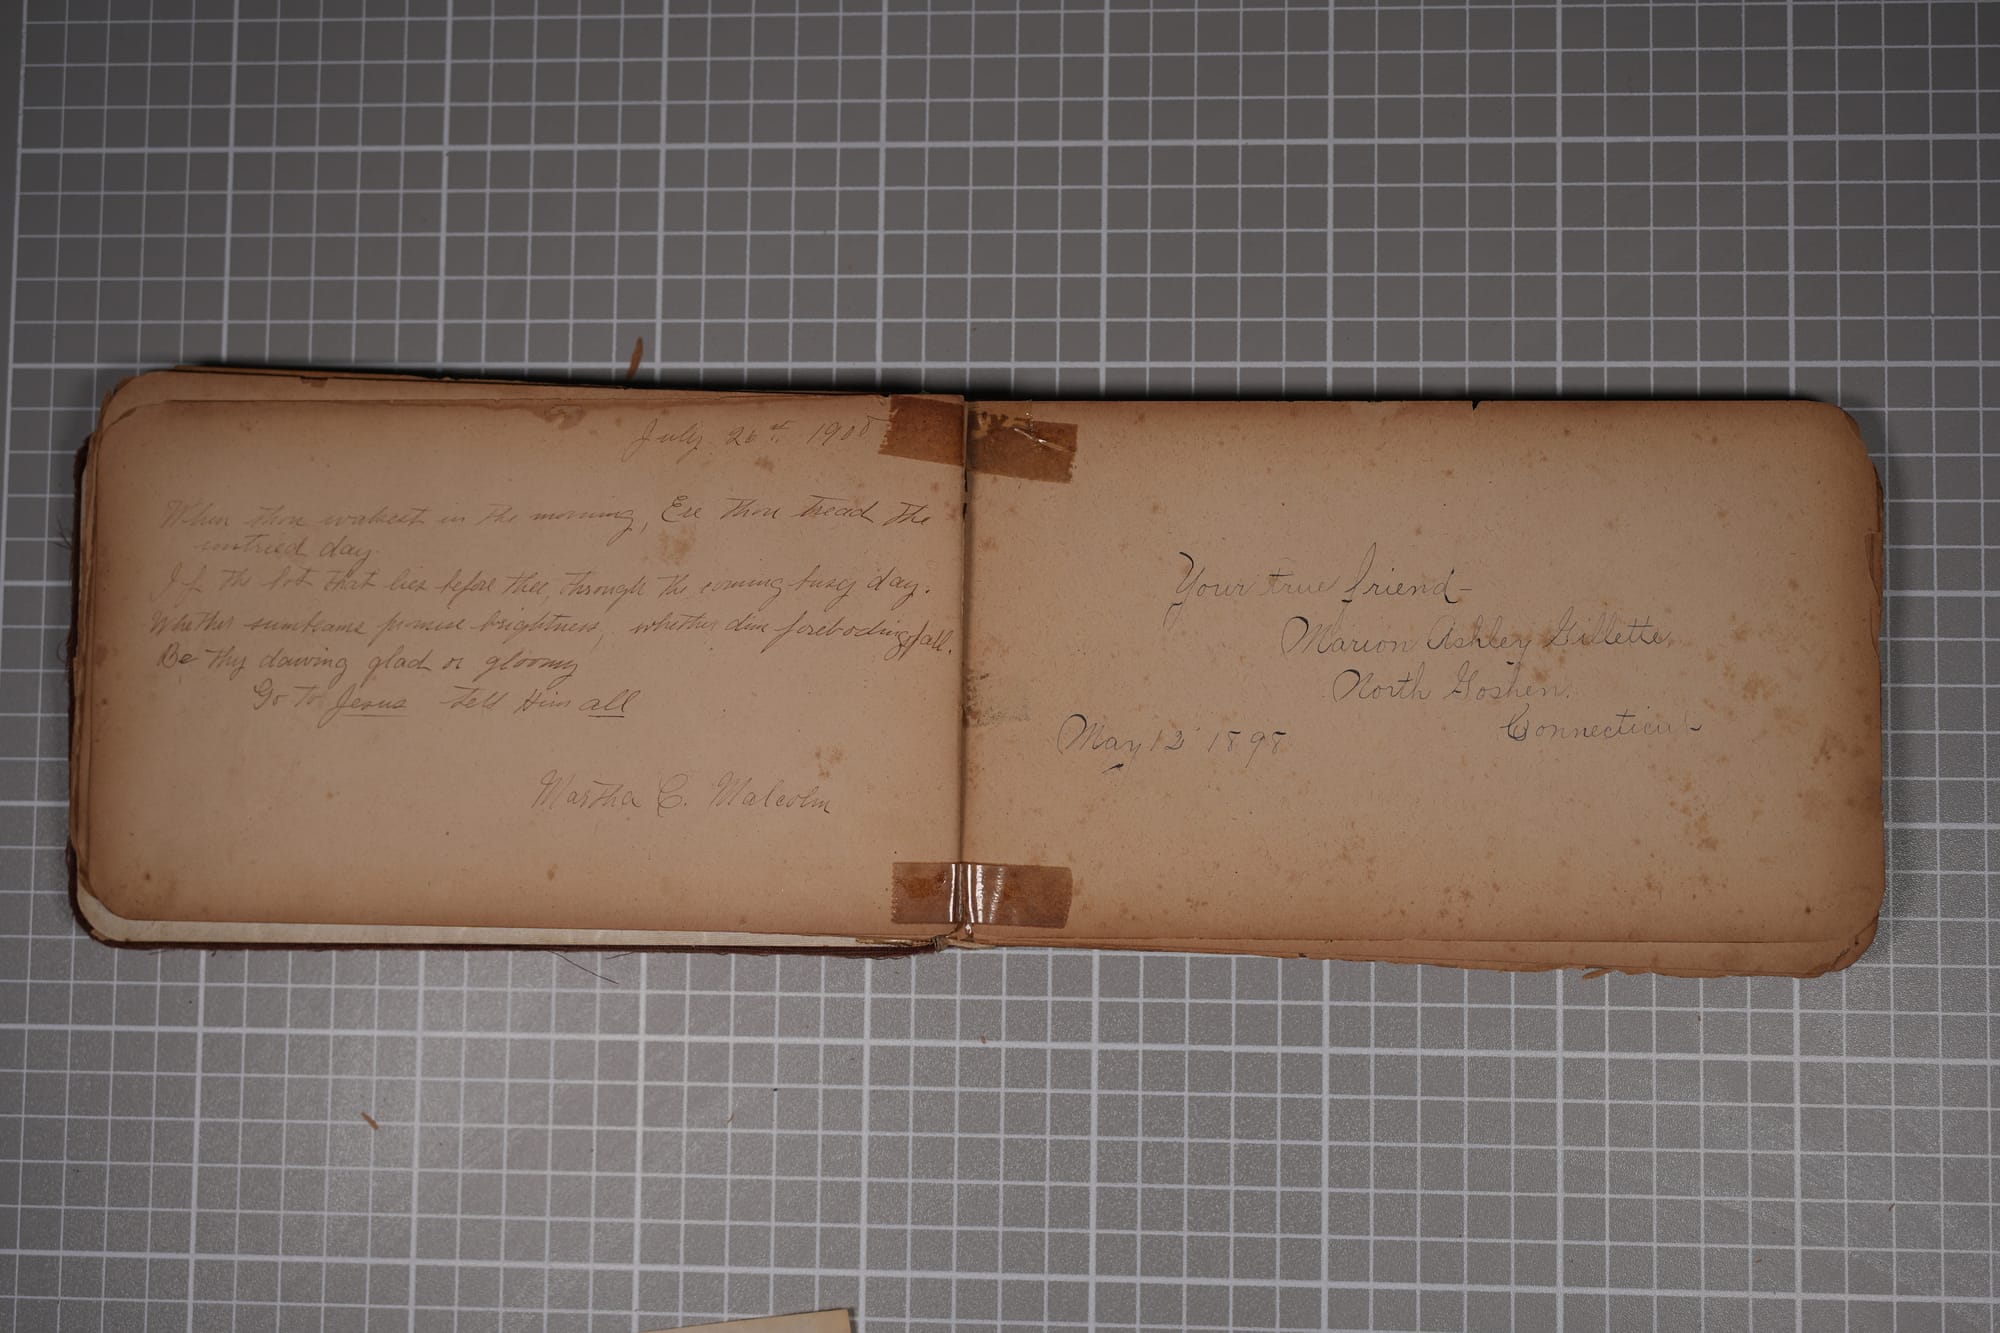 July 26th 1900
When thou wakest in the morning, Ere thou tread the
untried day.
If the lot that lies before thee, through the coming busy day.
Whether sunbeams promise brightness, whether dim forebodings fall.
Be thy dawing glad or gloomy
Go to Jesus tell Him all
Martha C. Malcolm
Your true friend-
Marion Ashley Gillette,
North Goshen.
Connecticut
May 12 1898